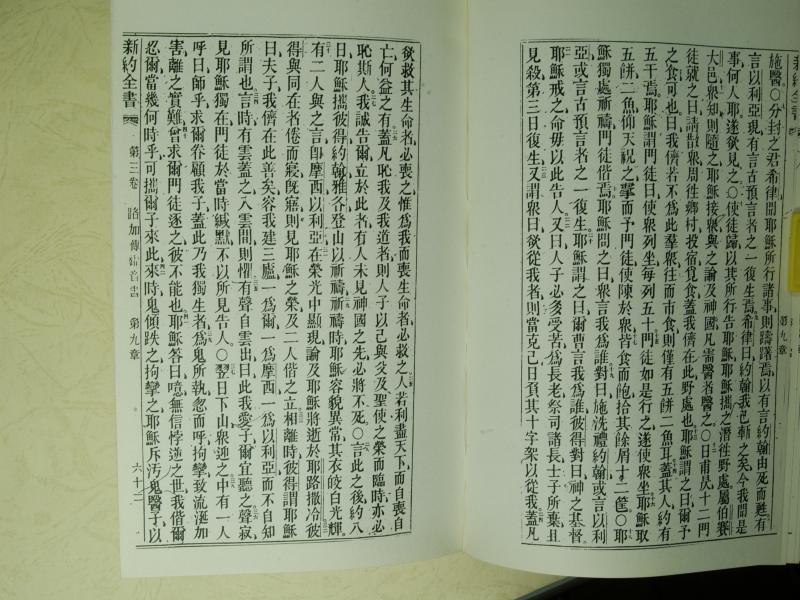 新約全書
第九章
施醫○分封之君希律聞耶穌所行諸事則躊躇焉以有言約翰由死而甦有
言以利亞現有言古預言者之一復生焉希律曰約翰我已斬之矣今我聞是
事何人耶遂欲見之○使徒歸以其所行告耶穌耶穌攜之潛往野處屬伯賽
大邑衆知則隨之耶穌接衆與之論及神國凡需醫者醫之○日甫昃十二門
徒就之曰請散衆周往鄉村投宿覓食蓋我儕在此野處也耶穌謂之曰爾予
之食可也曰我儕若不爲此羣衆往而市食則僅有五餅二魚耳蓋其人約有
五千焉耶穌謂門徒曰使衆列坐每列五十門徒如是行之遂使衆坐耶穌取
五餅二魚仰天祝之擘而予門徒使陳於衆皆食而飽拾其餘屑十二筐○耶
穌獨處祈禱門徒偕焉耶穌問之曰衆言我爲誰對曰施洗禮約翰或言以利
亞或言古預言者之一復生耶穌謂之曰爾曹言我爲誰彼得對曰神之基督
耶穌戒之命毋以此告人又曰人子必多受苦爲長老祭司諸長士子所棄且
見殺第三日復生又謂衆曰欲從我者則當克己日負其十字架以從我蓋凡
欲救其生命者必喪之惟爲我而喪生命者必救之人若利盡天下而自喪自
亡何益之有蓋凡恥我及我道者則人子以己與父及聖使之榮而臨時亦必
恥斯人我誠告爾立於此者有人未見神國之先必將不死○言此之後約八
日耶穌攜彼得約翰雅各登山以祈禱祈禱時耶穌容貌異常其衣皎白光輝
有二人與之言卽摩西以利亞在榮光中顯現論及耶穌將逝於耶路撒冷彼
得與同在者倦而寢旣寤則見耶穌之榮及二人偕之立相離時彼得謂耶穌
曰夫子我儕在此善矣容我建三廬一爲爾一爲摩西一爲以利亞而不自知
所謂也言時有雲蓋之入雲間則懼有聲自雲出曰此我愛子爾宜聽之聲寂
見耶穌獨在門徒於當時緘默不以所見告人○翌日下山衆迎之中有一人
呼曰師乎求爾眷顧我子蓋此乃我獨生者爲鬼所執忽而呼拘攣致流涎加
害離之實難曾求爾門徒逐之彼不能也耶穌答曰噫無信悖逆之世我偕爾
忍爾當幾何時乎可攜爾子來此來時鬼傾跌之拘攣之耶穌斥汚鬼醫子以
新約全書 第三卷 路加傳福音書 第九章 六十二